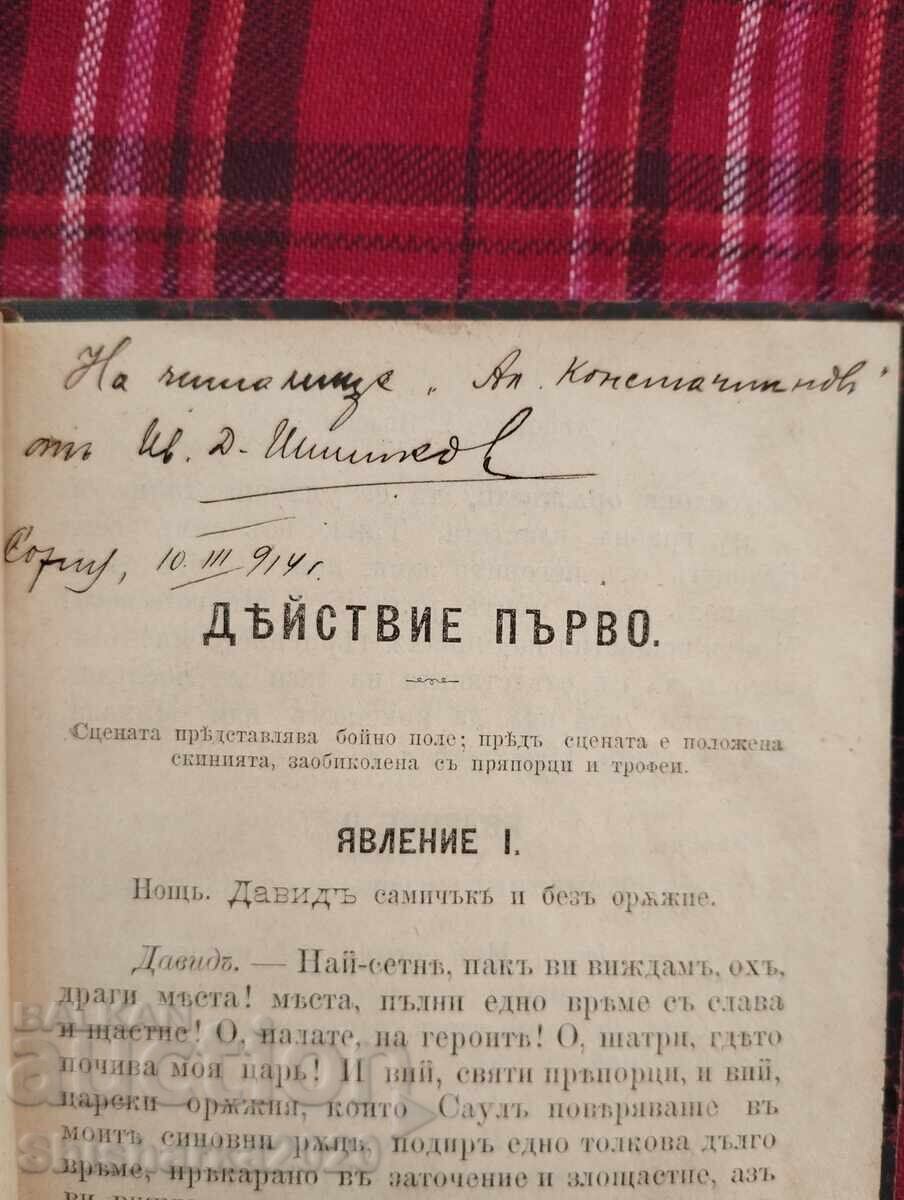 На читалище „Ал. Константиновъ“
отъ Ив. Д. Шишковъ
София, 10. III 914 г.
ДѢЙСТВИЕ ПЪРВО.
Сцената прѣдставлява бойно поле; прѣдъ сцената е положена
скинията, заобиколена съ пряпорци и трофеи.
ЯВЛЕНИЕ I.
Нощь. Давидъ самичъкъ и безъ орѫжие.
Давидъ. — Най-сетнѣ, пакъ ви виждамъ, охъ,
драги мѣста! мѣста, пълни едно врѣме съ слава
и щастие! О, палате, на героитѣ! О, шатри, гдѣто
почива моя царь! И вий, святи прѣпорци, и вий,
царски орѫжия, които Саулъ повѣряваше въ
моитѣ синовни рѫцѣ, подиръ едно толкова дълго
врѣме, прѣкарано въ заточение и злощастие, азъ
BALKAN
auction